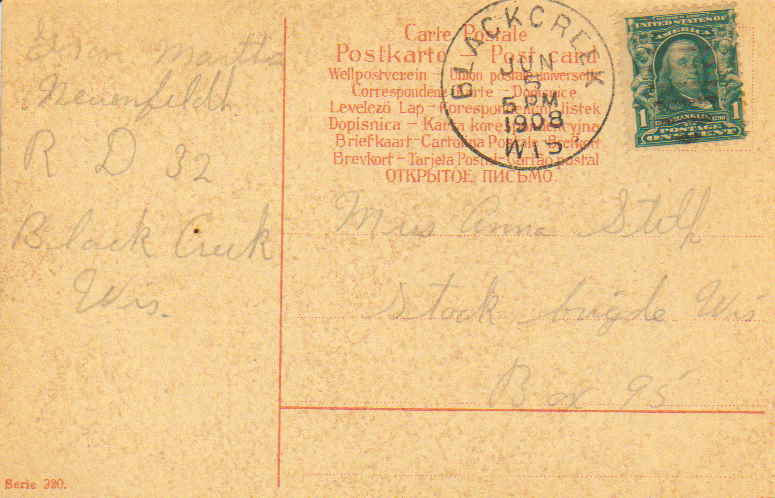 From Martha
Neuenfeldt
R D 32
Black Creek
Wis.
Serie 320.
Carte Postale
Postkarte Post card
Weltpostverein – Union postale universelle
Correspondenz Karte – Dopisnice
Levelező Lap – Korespondenční lístek
Dopisnica – Karta korespondencyjna
Briefkaart – Cartolina Postale Brefkort
Brevkort – Tarjeta Postal – Cartão postal
ОТКРЫТОЕ ПИСЬМО.
BLACKCREEK
JUN
5
5 PM
1908
WIS.
UNITED STATES OF
AMERICA
1 1
POSTAGE
ONE CENT
Miss Anna Stilp
Stock brigde Wis
Box 95